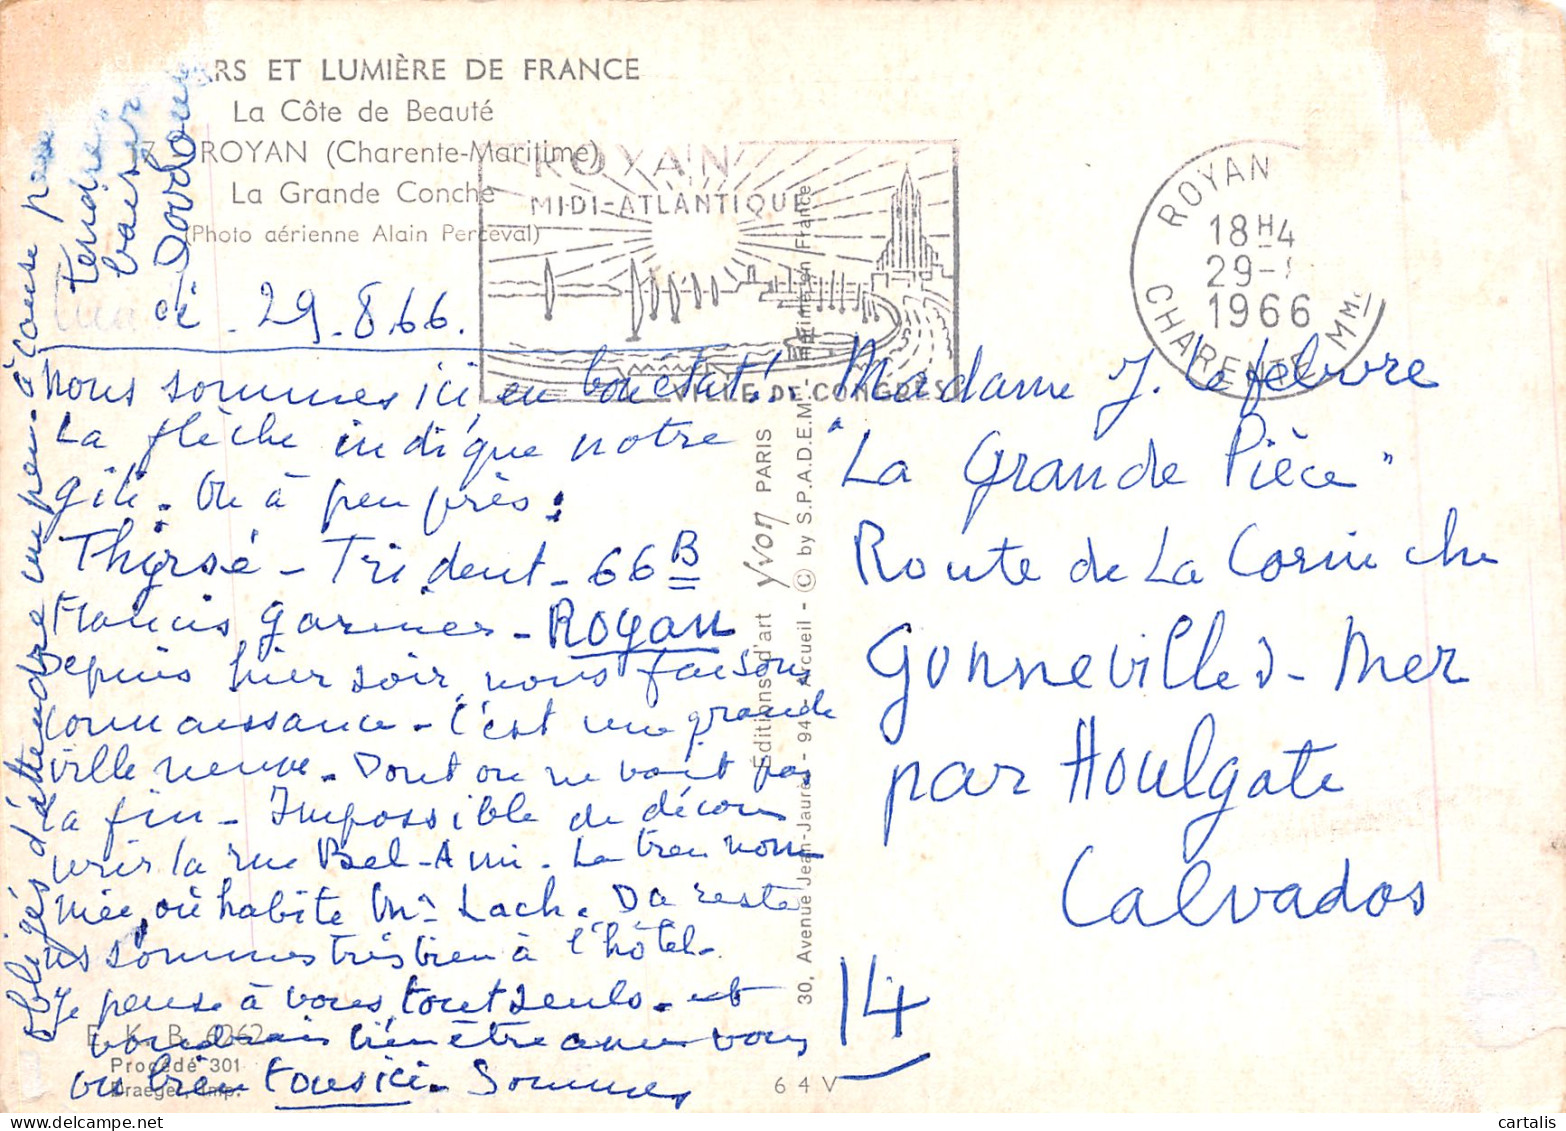 ARS ET LUMIÈRE DE FRANCE
La Côte de Beauté
17 ROYAN (Charente-Maritime)
La Grande Conche
(Photo aérienne Alain Perceval)
ROYAN
MIDI-ATLANTIQUE
VILLE DE CONGRES
ROYAN
18H4
29-
1966
CHARENTE MME
29.8.66.
nous sommes ici en bon état!
La flèche indique notre
gite. Ou à peu près:
Thyrsé - Trident - 66 B
Francis Garnier - Royan
Depuis hier soir, nous faisons
connaissance - C'est une grande
ville neuve. Dont on ne voit pas
la fin - Impossible de décou
vrir la rue Bel-Ami. La bien nom
mée, où habite Mr Lach. Da reste
ns sommes très bien à l'hôtel.
Je pense à vous tout seuls. et
voudrais bien être avec vous
ou bien tous ici. Sommes
obligés d'attendre un peu à cause
tendres
baisers
Doudou
Madame J. Lefebvre
"La Grande Pièce"
Route de La Corniche
Gonneville s- Mer
par Houlgate
Calvados
14
Editions d'art Yvon PARIS
30, Avenue Jean-Jaurès - 94 - Arcueil - © by S.P.A.D.E.M. - Imprimé en France
E. K. B. 6262
Procédé 301
Draeger, Imp.
64 V
cartalis